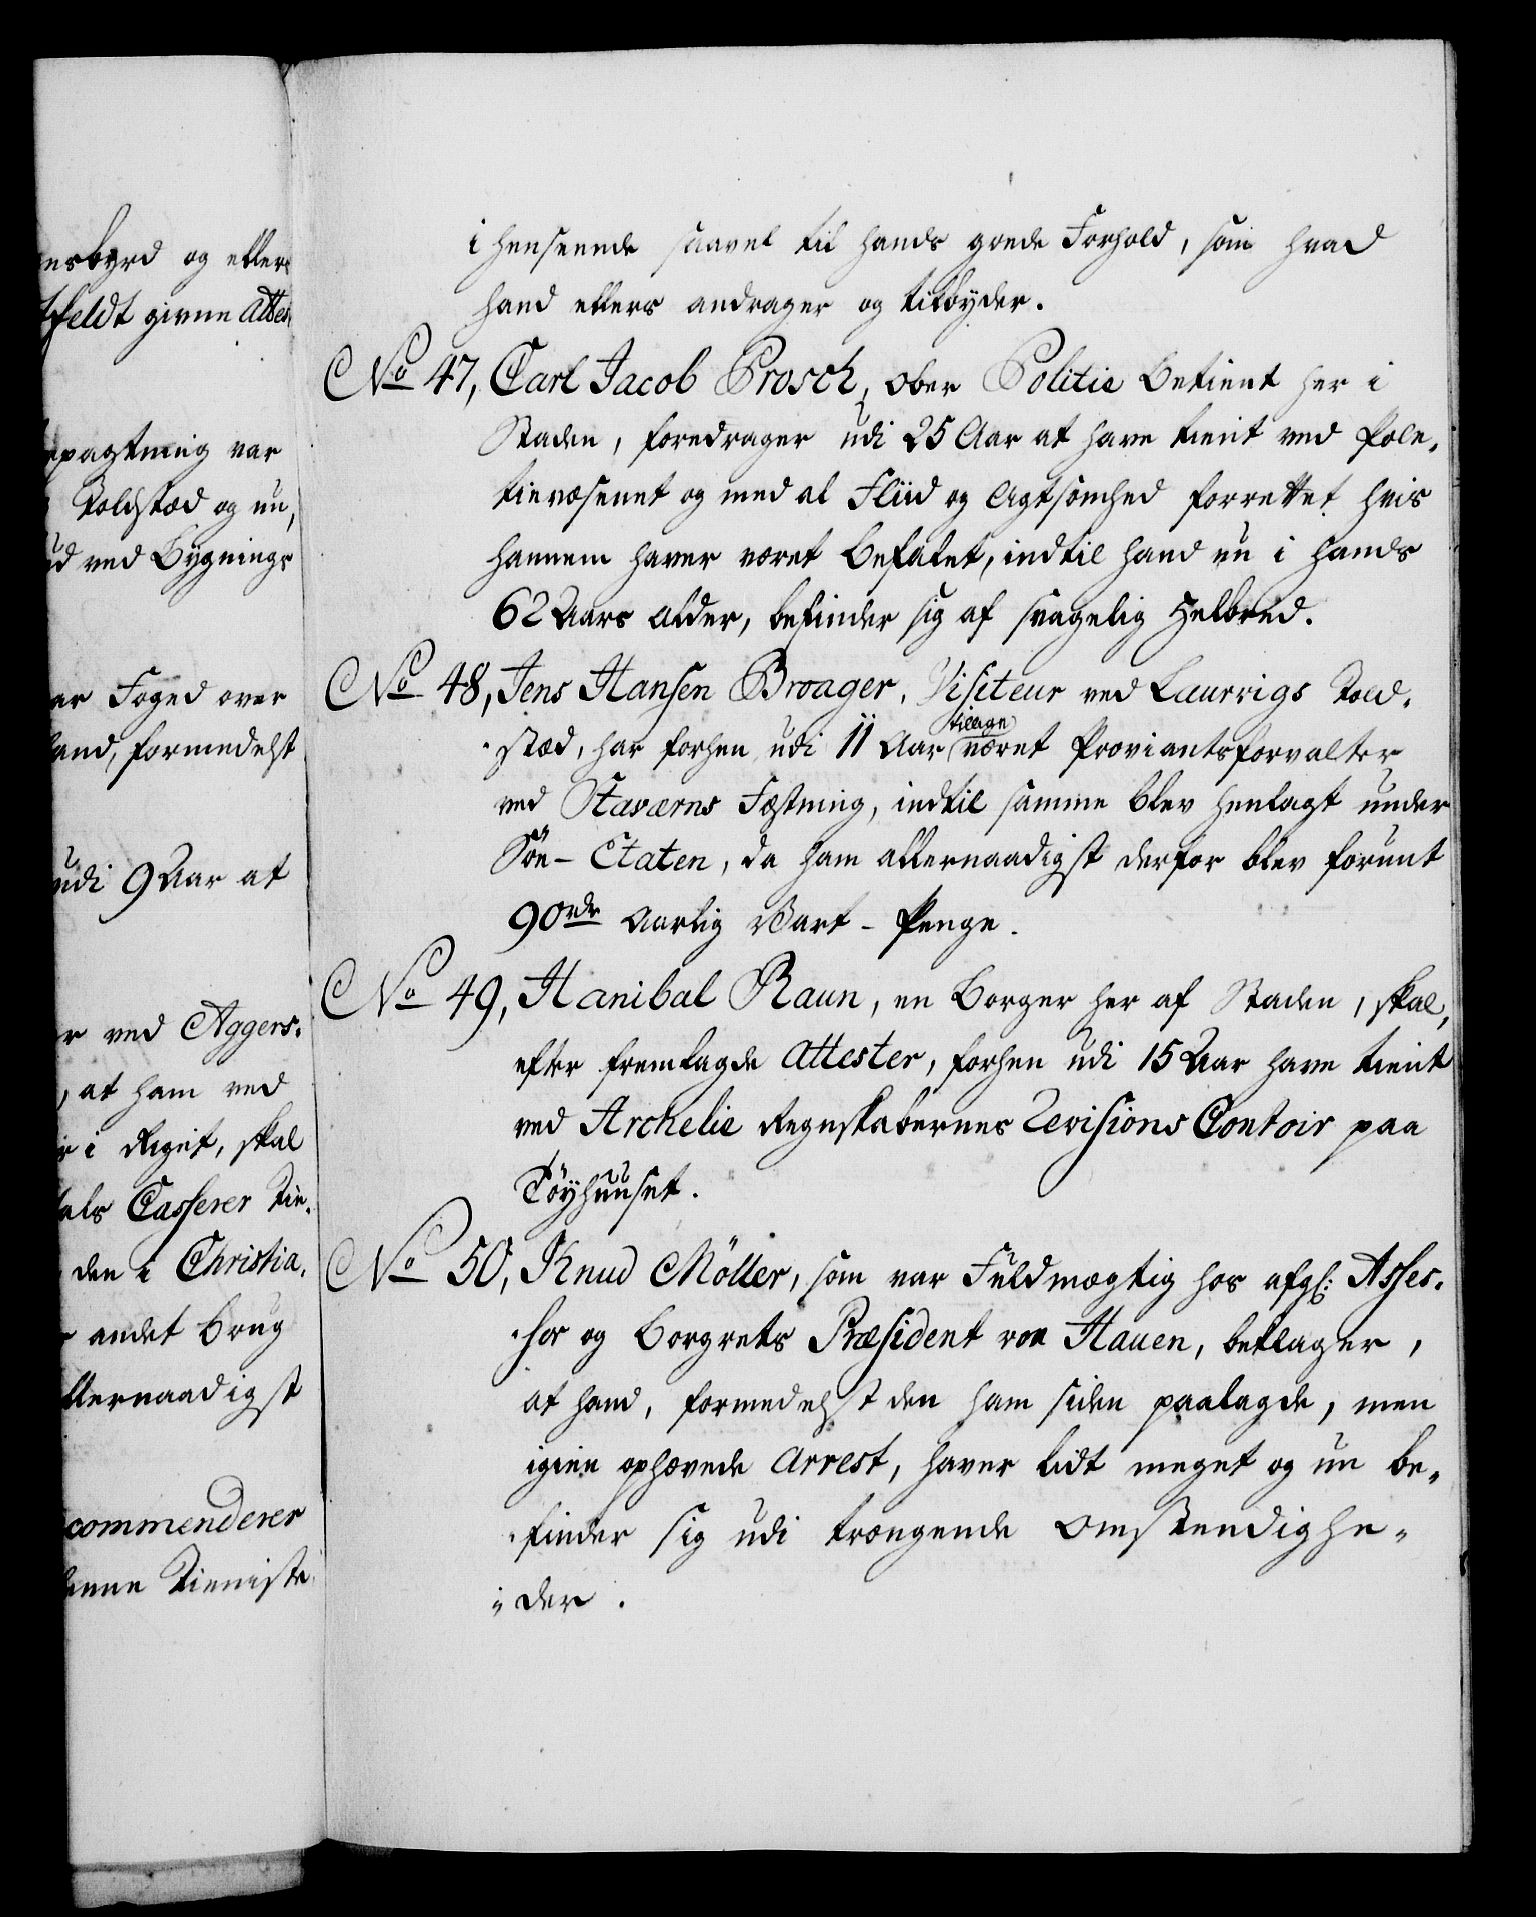 ensbyrd og ellers
feldt givne Attes
epagtning var
Toldstæd og nu,
ud ved Bygnings
ar Foged over
land, formedelst
udi 9 Aar at
r ved Aggers-
, at ham ved
i Riget, skal
als Casserer Tie-
den i Christia-
andet brug
llernaadigst
commenderer
denne Tieniste
i henseende saavel til hands goede Forhold, som hvad
hand ellers andrager og tilbyder.
No 47, Carl Jacob Prosch, Ober Politie Betient her i
Staden, foredrager udi 25 Aar at have tient ved Pole-
tievæsenet og med al Fliid og Agtsomhed forrettet hvis
hannem haver været befalet, indtil hand nu i hands
62 Aars Alder, befinder sig af svagelig Helbred.
No 48, Jens Hansen Broager, Visiteur ved Laurvigs Told-
tilage
-stæd, har forhen udi 11 Aar været Proviantsforvalter
ved Staværns Fæstning, indtil samme blev henlagt under
Söe-Etaten, da ham allernaadigst derfor blev forunt
90 rdr Aarlig Vart-Penge.
No 49, Hanibal Raun, en Borger her af Staden, skal,
efter fremlagde Attester, forhen udi 15 Aar have tient
ved Archelie Regnskabernes Revisions Contoir paa
Töyhuuset.
No 50, Knud Möller, som var Fuldmægtig hos afgl: Asses-
-sor og Borgrets Præsident von Hauen, beklager,
at hand, formedelst den ham siden paalagde, men
igien ophævede Arrest, haver lidt meget og nu be-
-finder sig udi trængende Omstendighe-
der.